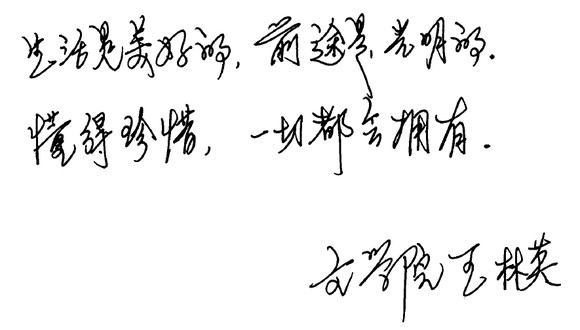 生活是美好的，前途是光明的.
懂得珍惜，一切都会拥有.
文学院王林英